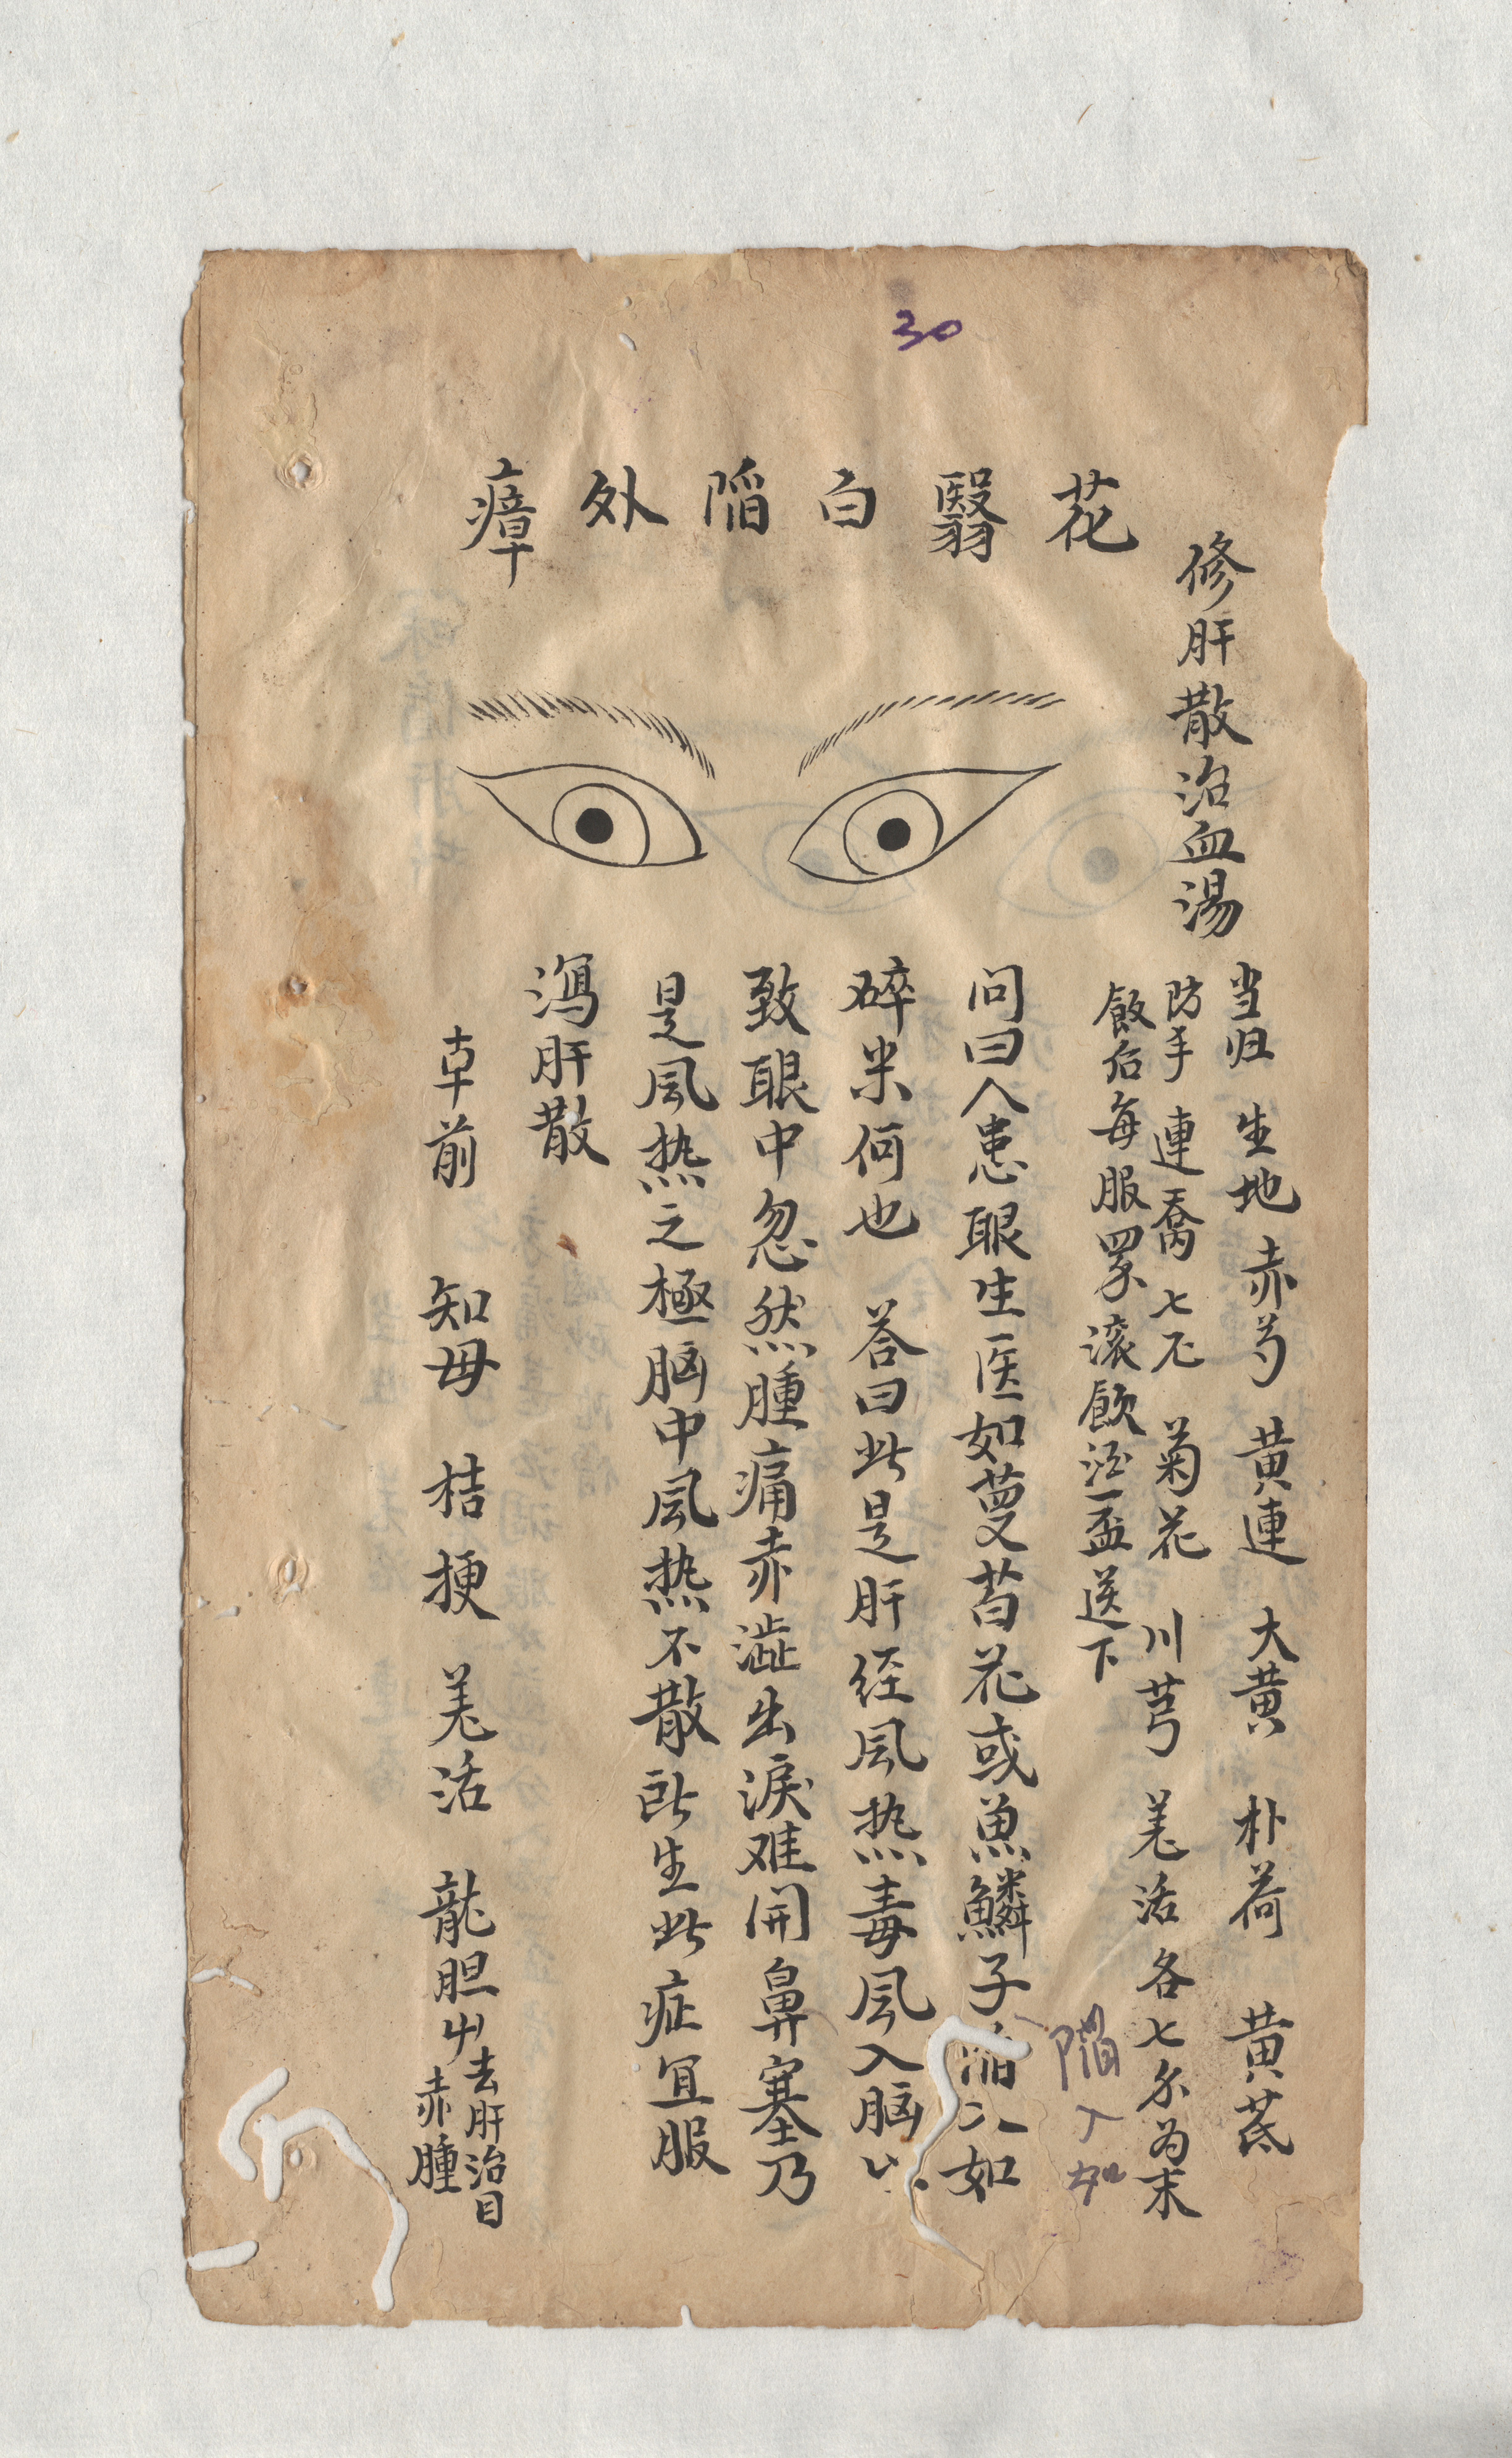 30
修肝散治血湯
当归 生地 赤芍 黄連 大黄 朴荷 黄芪
防手 連喬 七下 菊花 川芎 羌活 各七分为末
飯后每服四分滚飲酒一盃送下
花翳白陷外瘴
问曰人患眼生医如蔓苔花或魚鱗子陷入如
陷入如
碎米何也 答曰此是肝经風热毒風入脑以
致眼中忽然腫痛赤澁出淚难開鼻塞乃
是風热之極脑中風热不散所生此症宜服
瀉肝散
車前 知母 桔梗 羌活 龍胆艸去肝治目
赤腫